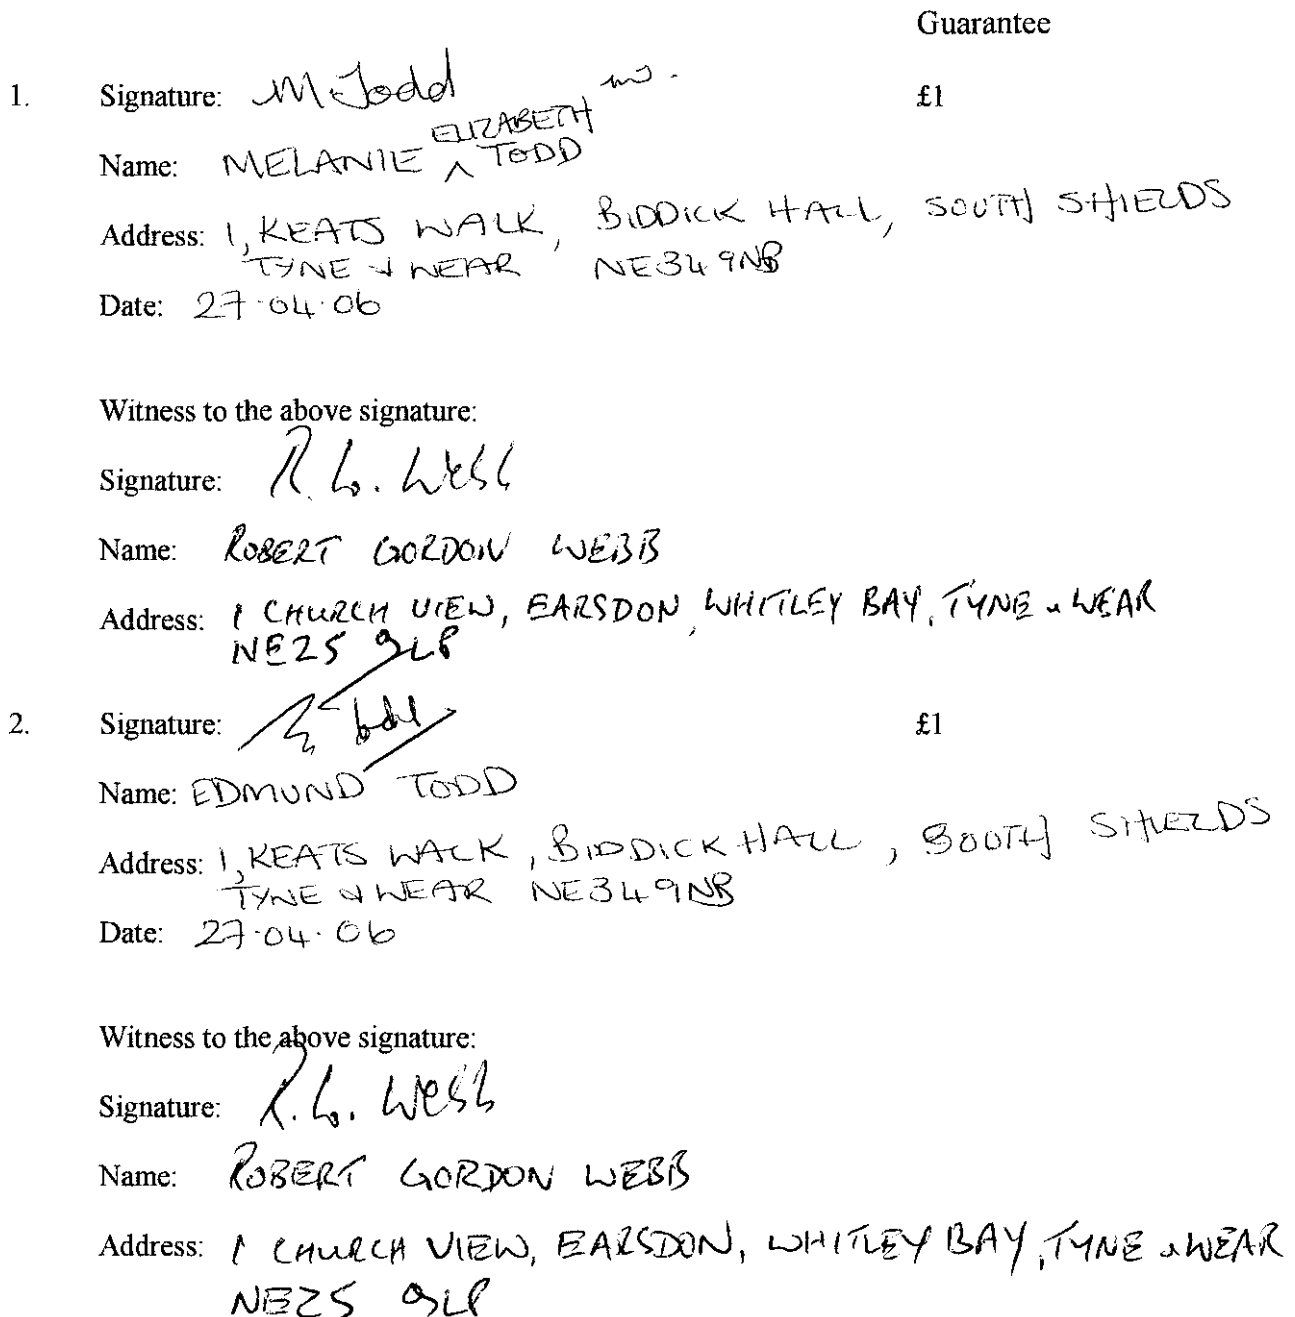 Guarantee
1. Signature: M Todd £1
Name: MELANIE ELIZABETH TODD
Address: 1, KEATS WALK, BIDDICK HALL, SOUTH SHIELDS
TYNE & WEAR NE34 9NB
Date: 27.04.06
Witness to the above signature:
Signature: R. G. Webb
Name: ROBERT GORDON WEBB
Address: 1 CHURCH VIEW, EARSDON, WHITLEY BAY, TYNE & WEAR
NE25 9LP
2. Signature: E Todd £1
Name: EDMUND TODD
Address: 1, KEATS WALK, BIDDICK HALL, SOUTH SHIELDS
TYNE & WEAR NE34 9NB
Date: 27.04.06
Witness to the above signature:
Signature: R. G. Webb
Name: ROBERT GORDON WEBB
Address: 1 CHURCH VIEW, EARSDON, WHITLEY BAY, TYNE & WEAR
NE25 9LP